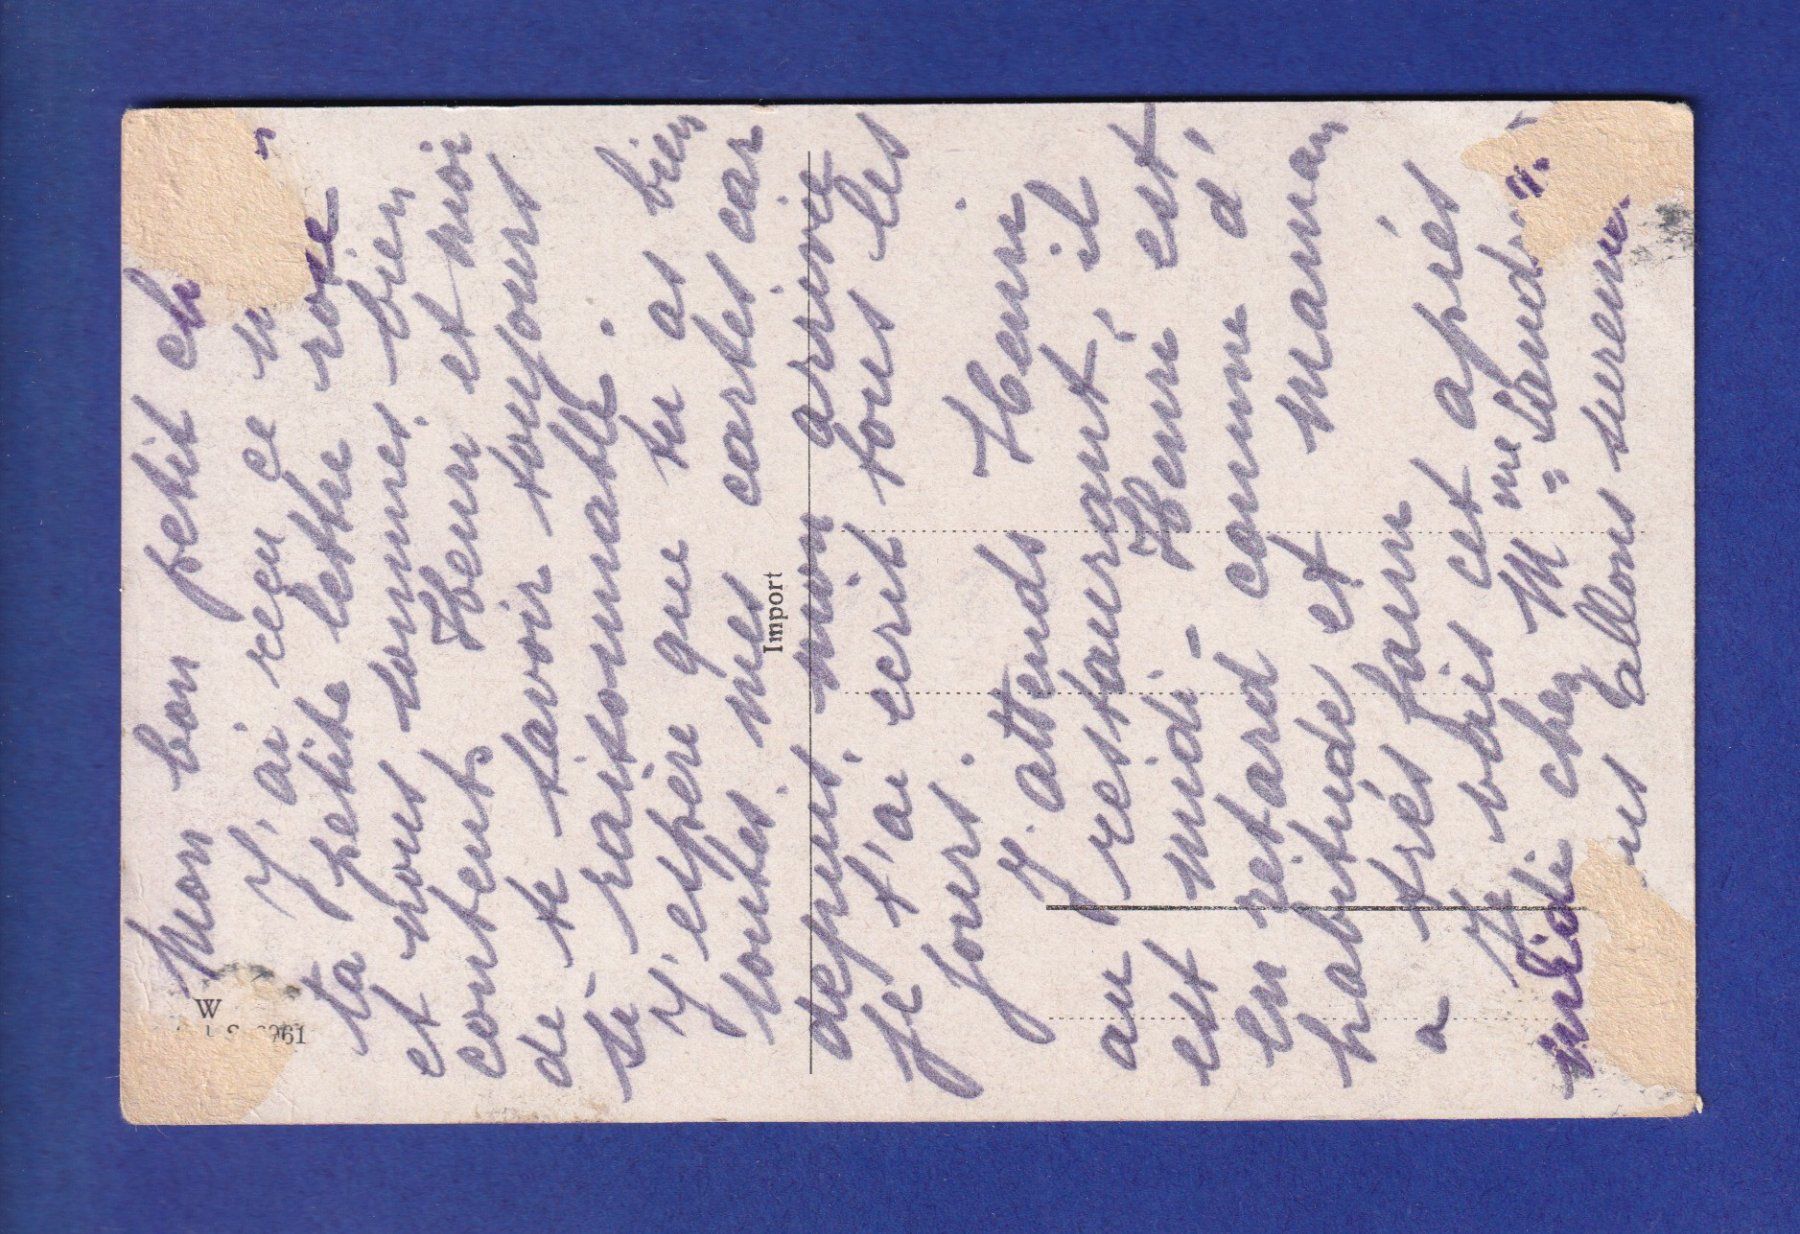 Mon bon petit ch
J'ai reçu ce
ta petite lettre rose
et nous sommes bien
contents Henri et moi
de te savoir toujours
si raisonnable.
J'espère que tu as bien
toutes mes cartes car
depuis mon arrivée
je t'ai ecrit tous les
jours.
J'attends Henri
au restaurant il
est midi - Henri est
en retard comme d'
habitude et maman
a très faim
Je vais cet après
midi chez Mme
us allons surement
W
961
Import